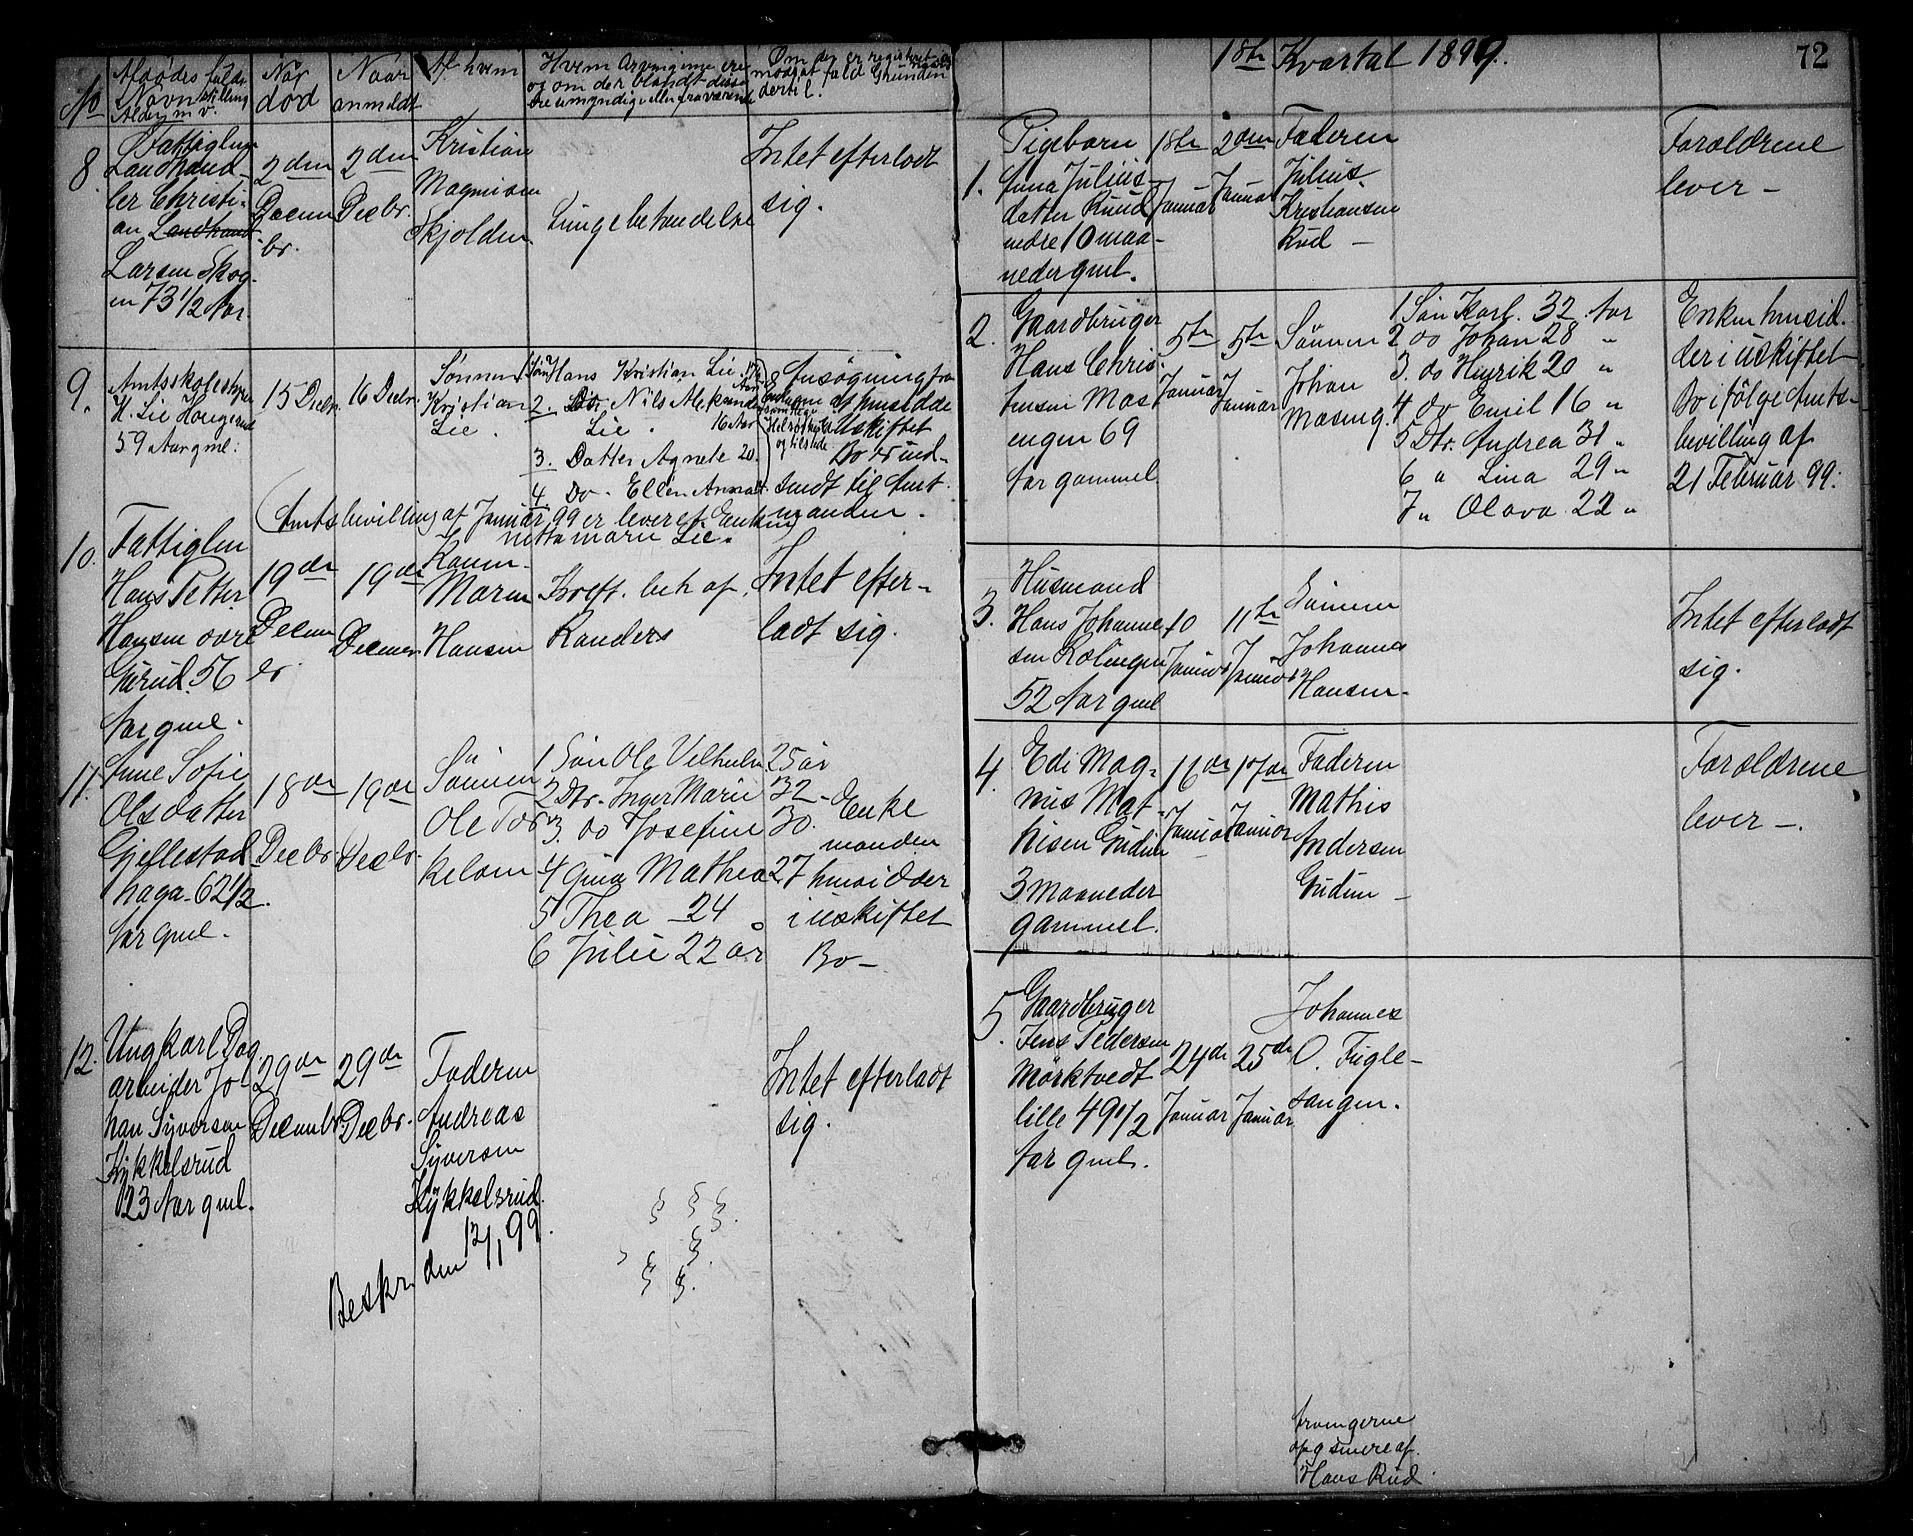 No
Afdødes fulde
Navn stilling
Alder m. v.
Når
død
Naar
anmeldt
Af hvem
Hvem Arvingerne ere
og om der blandt disse
ere umyndige eller fraværende
Om der er registreret
modsat fald Grunden
dertil.
8.
Fattiglem
Landhand-
ler Christi-
an Landhand
Larsen Skog-
en 73 1/2 Aar.
2den
Decem
br.
2den
Decbr.
Kristian
Magnusen
Skjolden.
Lunge betændelse
Intet efterladt
sig.
9.
Amtsskolebestyrer
H. Lie Haugerud
59 Aar gml:
15 Decbr.
16 Decbr.
Sønnen
Kristian
Lie.
1 Søn Hans Kristian Lie
2. Do. Nils Aleksander
Lie. 16 Aar
3. Datter Agnete 20.
4 Do. Ellen Anna
samtlige
og tilstede
Ansøgning fra
Enken at hensidde
i Uskiftet
Bo er ind-
sendt til Amt-
manden.
(Amtsbevilling af Januar 99 er leveret Enken)
Marie Lie.
10.
Fattiglem
Hans Petter
Hansen øvre
Gurud. 56
Aar gml.
19de
Decem
br
19de
Decembr.
Konen
Maren
Hansen
Kreft. beh af
Randers
Intet efter-
ladt sig.
11.
Anne Sofie
Olsdatter
Gjellestad
haga 62 1/2.
Aar gml.
18de
Decbr.
19de
Decbr.
Sønnen
Ole Tor
kelsen
1 Søn Ole Vilhelm. 25 år
2 Dtr. Inger Marie 32
3. do Josefine 30.
4 Gina Mathea 27
5 Thea 24
6 Julie 22 år
Enke
manden
hensidder
i uskiftet
Bo –
12.
Ungkarl Dag
arbeider Jo-
han Syversen
Kykkelsrud
23 Aar gml.
29de
Decembr
29de
Decbr.
Faderen
Andreas
Syversen
Kykkelsrud.
Intet efterladt
sig.
Beskr. den 12/1 99.
1ste Kvartal 1899.
72
1.
Pigebarn
Anna Julius-
datter Ruud
nedre 10 maa-
neder gml.
1ste
Januar
2den
Januar
Faderen
Julius
Kristiansen
Rud –
Forældrene
lever –
2.
Gaardbruger
Hans Chris-
tensen Mas
engen 69
Aar gammel
5te
Januar
5te
Januar
Sønnen
Johan
Maseng.
1 Søn Karl. 32. Aar
2 do Johan 28 "
3. do Henrik 20 "
4 do Emil 16 "
5 Dtr. Andrea 31 "
6 " Lina 29 "
7 " Olava 22 "
Enken hensid-
der i uskiftet
Bo ifølge Amts-
bevilling af
21 Februar 99.
3.
Husmand
Hans Johanne
sen Kolingen
52 Aar gml
10
Januar
11te
Januar
Sønnen
Johannes
Hansen.
Intet efterladt
sig.
4.
Edi Mag-
nus Mat-
hisen Gudim
3 Maaneder
gammel.
16de
Januar
17de
Januar
Faderen
Mathis
Andersen
Gudim –
Forældrene
lever –.
5.
Gaardbruger
Jens Pedersen
Mørktvedt
lille 49 1/2
Aar gml.
24de
Januar
25de
Januar
Johannes
O. Fugle-
sangen.
Arvingerne
opg senere af
Hans Rud.